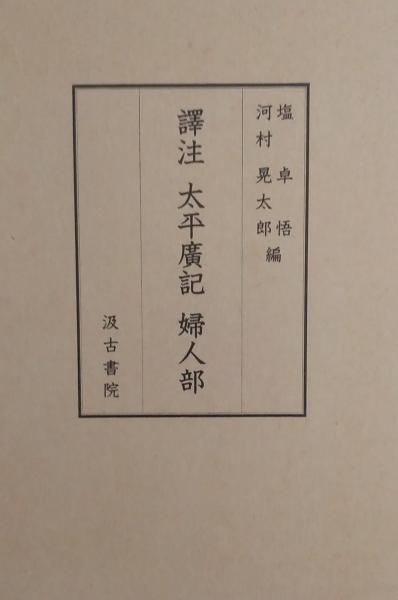 塩卓悟
河村晃太郎編
譯注 太平廣記 婦人部
汲古書院